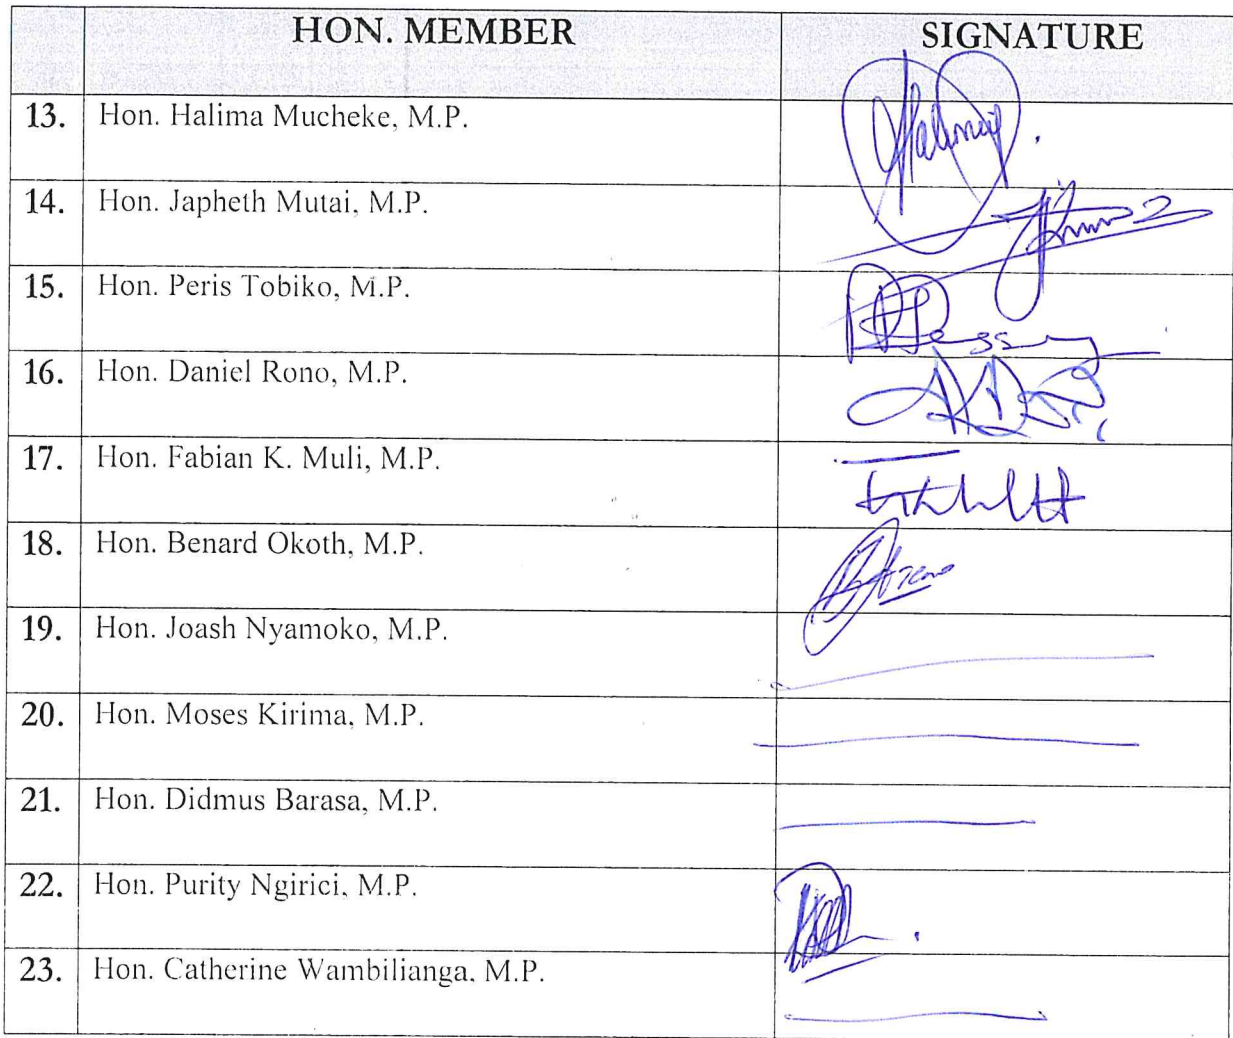 HON. MEMBER SIGNATURE
13. Hon. Halima Mucheke, M.P.
14. Hon. Japheth Mutai, M.P.
15. Hon. Peris Tobiko, M.P.
16. Hon. Daniel Rono, M.P.
17. Hon. Fabian K. Muli, M.P.
18. Hon. Benard Okoth, M.P.
19. Hon. Joash Nyamoko, M.P.
20. Hon. Moses Kirima, M.P.
21. Hon. Didmus Barasa, M.P.
22. Hon. Purity Ngirici, M.P.
23. Hon. Catherine Wambilianga, M.P.